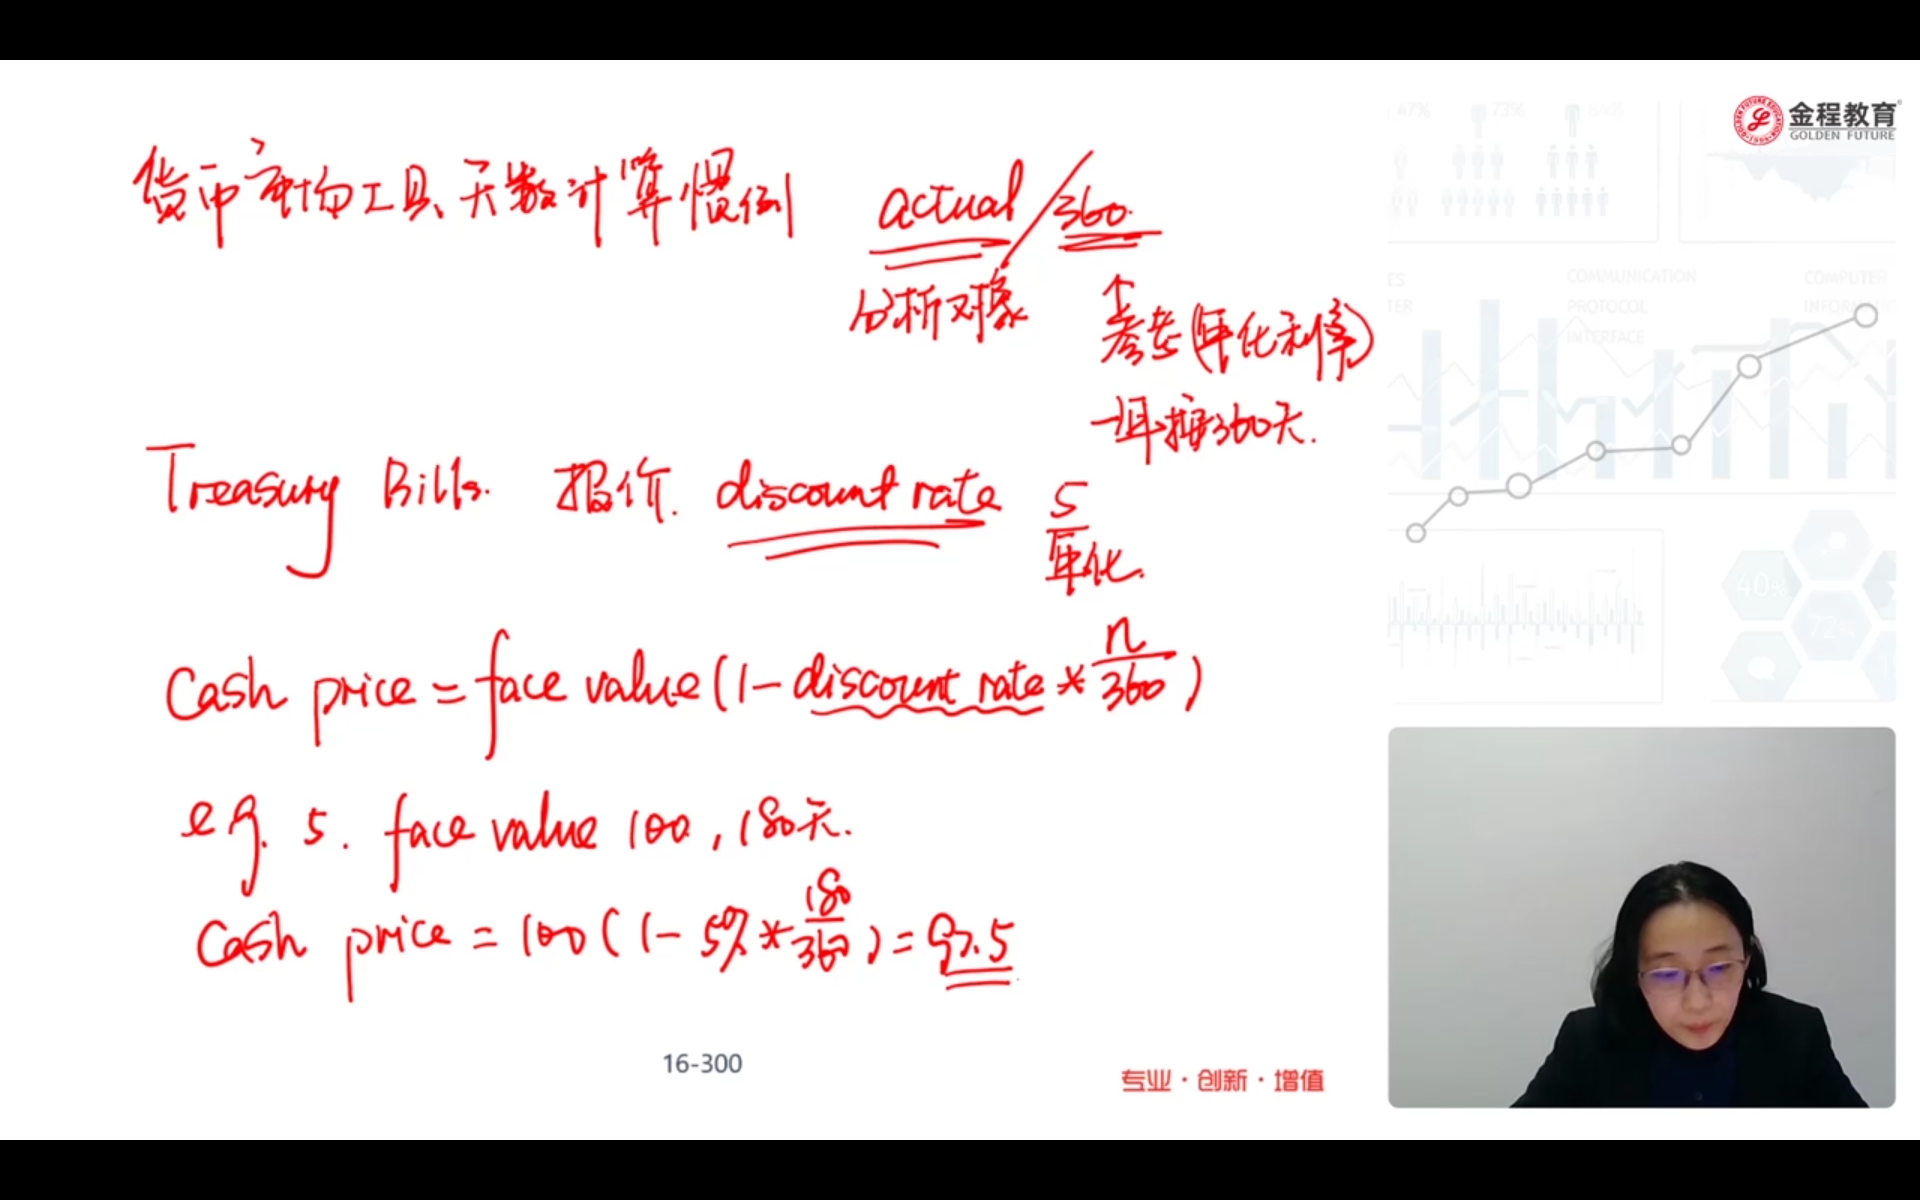 金程教育
GOLDEN FUTURE
货币市场工具天数计算惯例 actual/360.
分析对象
参考(年化利率)
一年按360天.
Treasury Bills. 报价. discount rate 5
年化.
Cash price = face value (1 - discount rate * n/360)
e.g. 5. face value 100, 180天.
Cash price = 100 (1 - 5% * 180/360) = 97.5
16-300
专业·创新·增值
47%
73%
COMMUNICATION
PROTOCOL
INTERFACE
COMPUTER
40%
72%